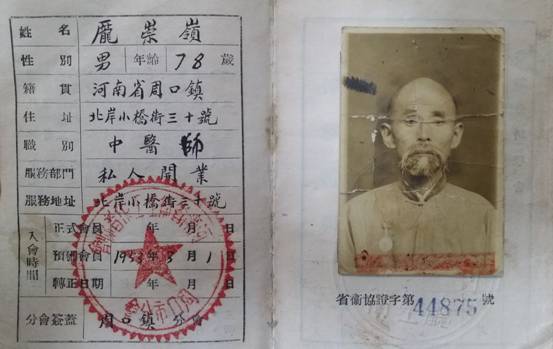 姓名 龐崇嶺
性別 男 年齡 78 歲
籍貫 河南省周口鎮
住址 北岸小橋街三十號
職別 中醫師
服務部門 私人開業
服務地址 北岸小橋街三十號
入會時間
正式會員 年 月 日
預備會員 1953年5月1日
轉正日期 年 月 日
分會簽蓋 周口鎮分會
省衞協證字第44875號